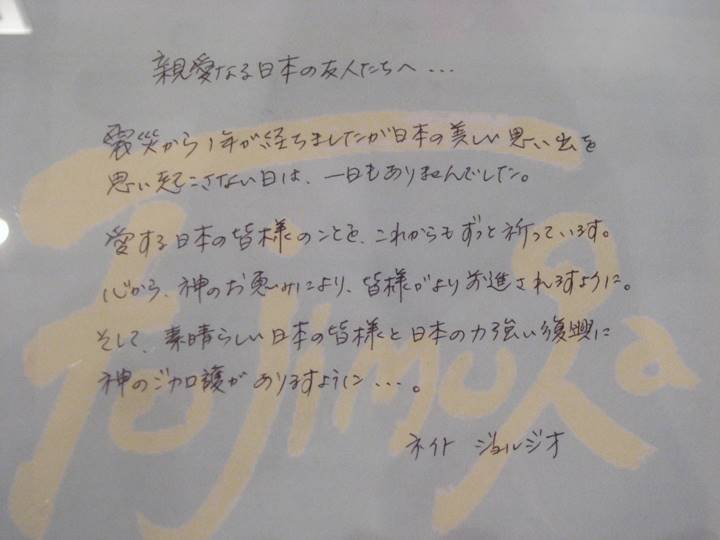 親愛なる日本の友人たちへ...
震災から1年が経ちましたが日本の美しい思い出を
思い起こさない日は、一日もありませんでした。
愛する日本の皆様のことを、これからもずっと祈っています。
心から、神のお恵みにより、皆様がより前進されますように。
そして、素晴らしい日本の皆様と日本の力強い復興に
神のご加護がありますように...。
ネイト ジョルジオ